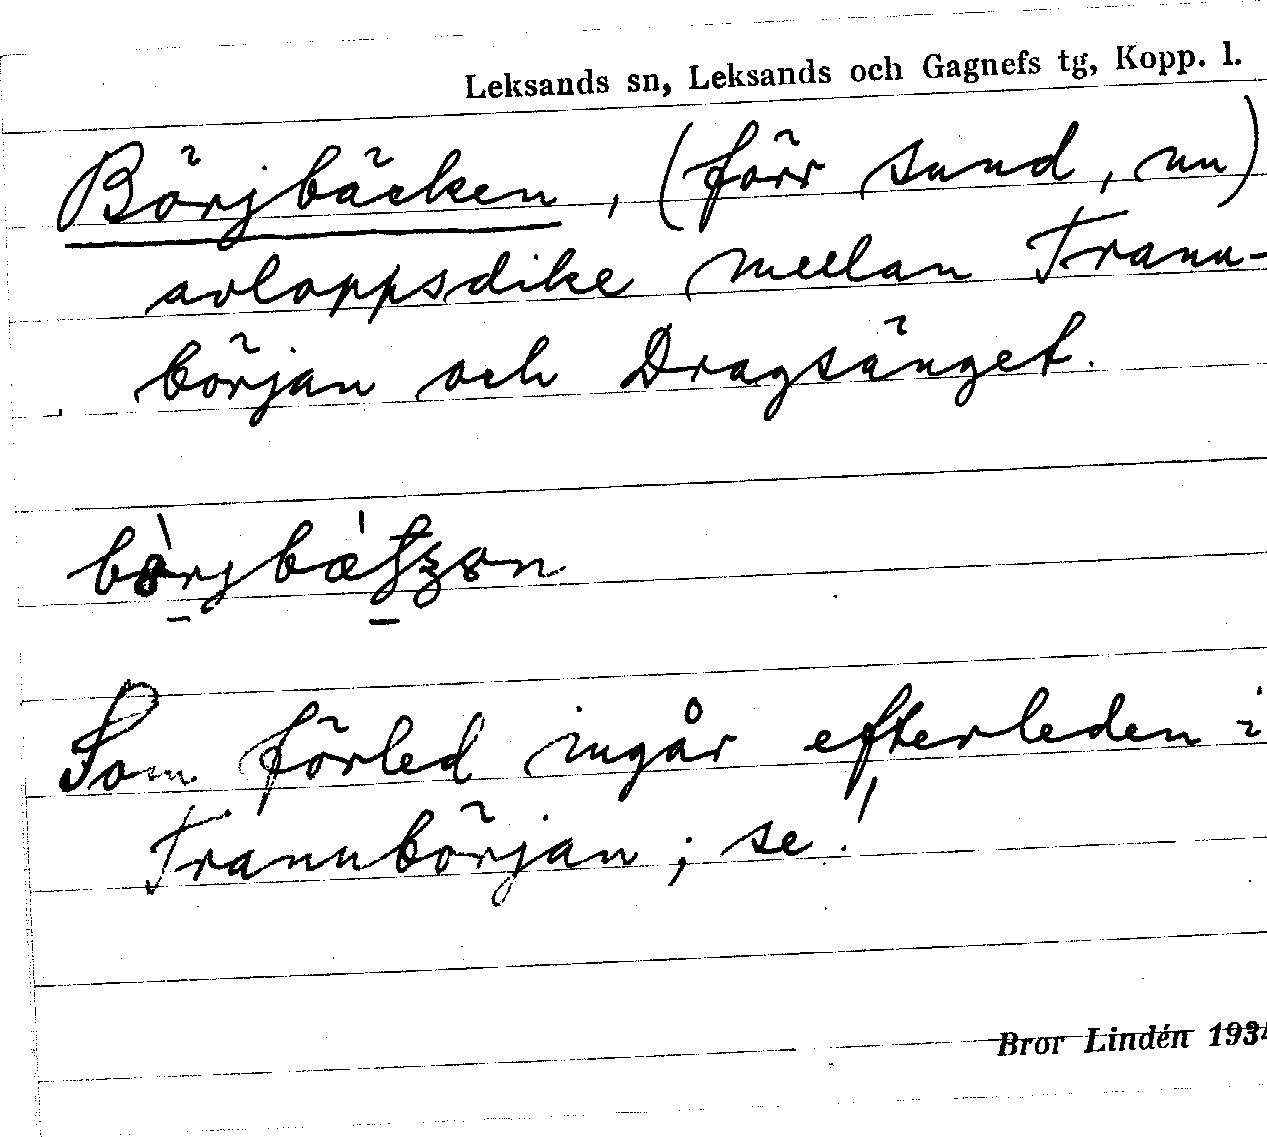 Leksands sn, Leksands och Gagnefs tg, Kopp. l.
Börjbäcken, (förr sund, nu)
avloppsdike mellan Trann-
början och Dragsänget.
Som förled ingår efterleden i
Trannbörjan; se!
Bror Lindén 1934